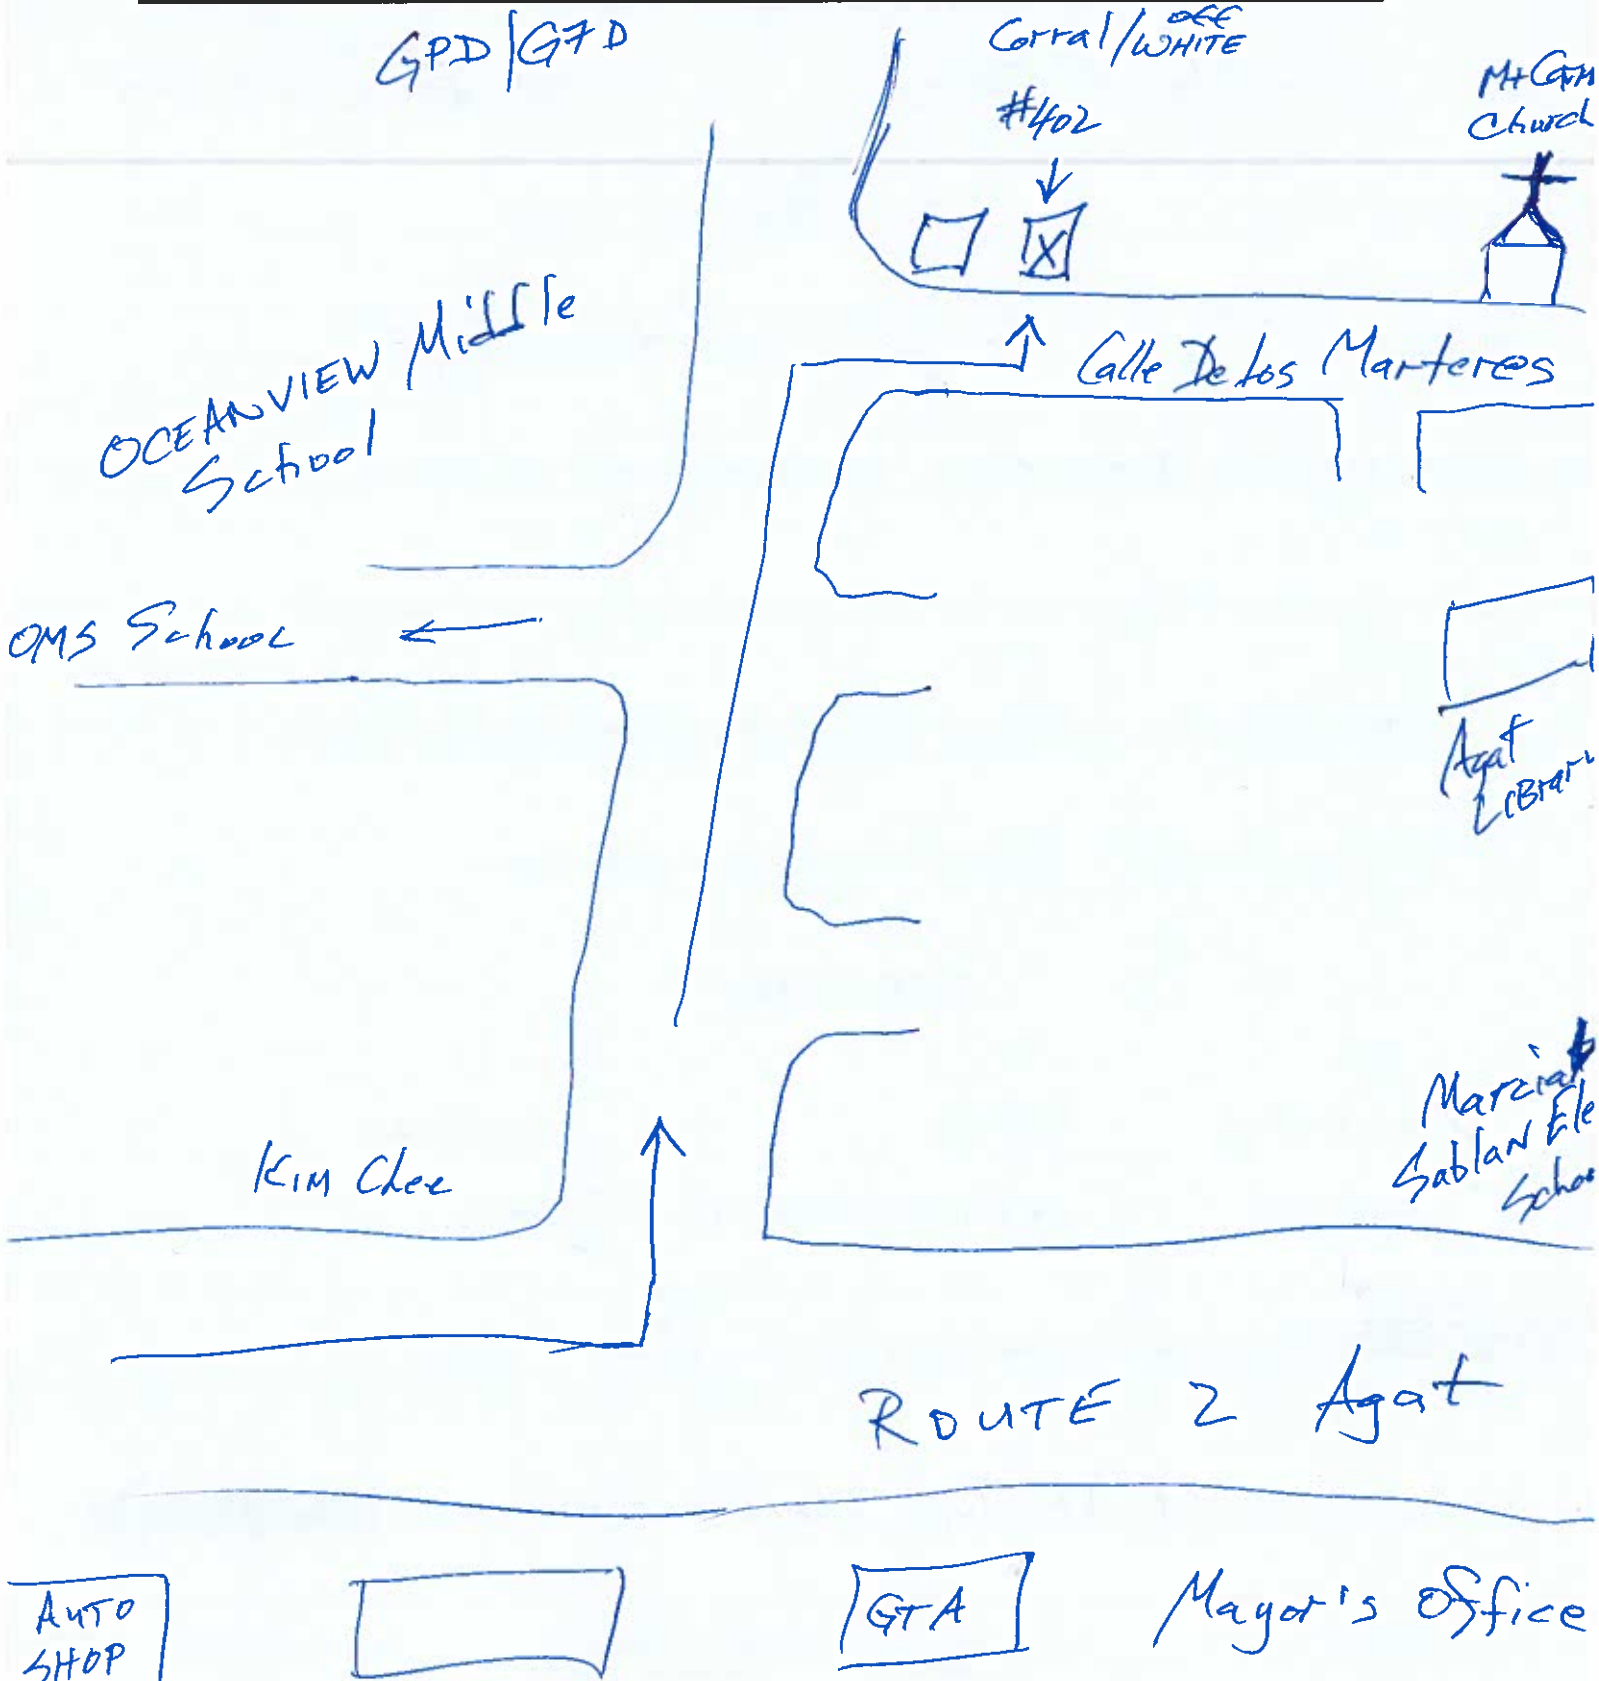 GPD/GFD
Corral/OFF
WHITE
#402
Mt Carm
Church
X
OCEANVIEW Middle
School
Calle De Los Marteres
OMS School
Agat
LiBrary
Marcial
Sablan Ele
Schoo
Kim Chee
ROUTE 2 Agat
AUTO
SHOP
GTA
Mayor's Office